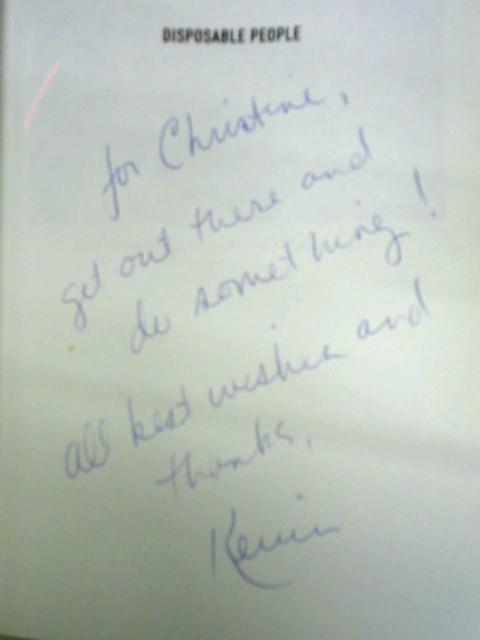 DISPOSABLE PEOPLE
for Christine,
get out there and
do something!
all best wishes and
thanks,
Kevin